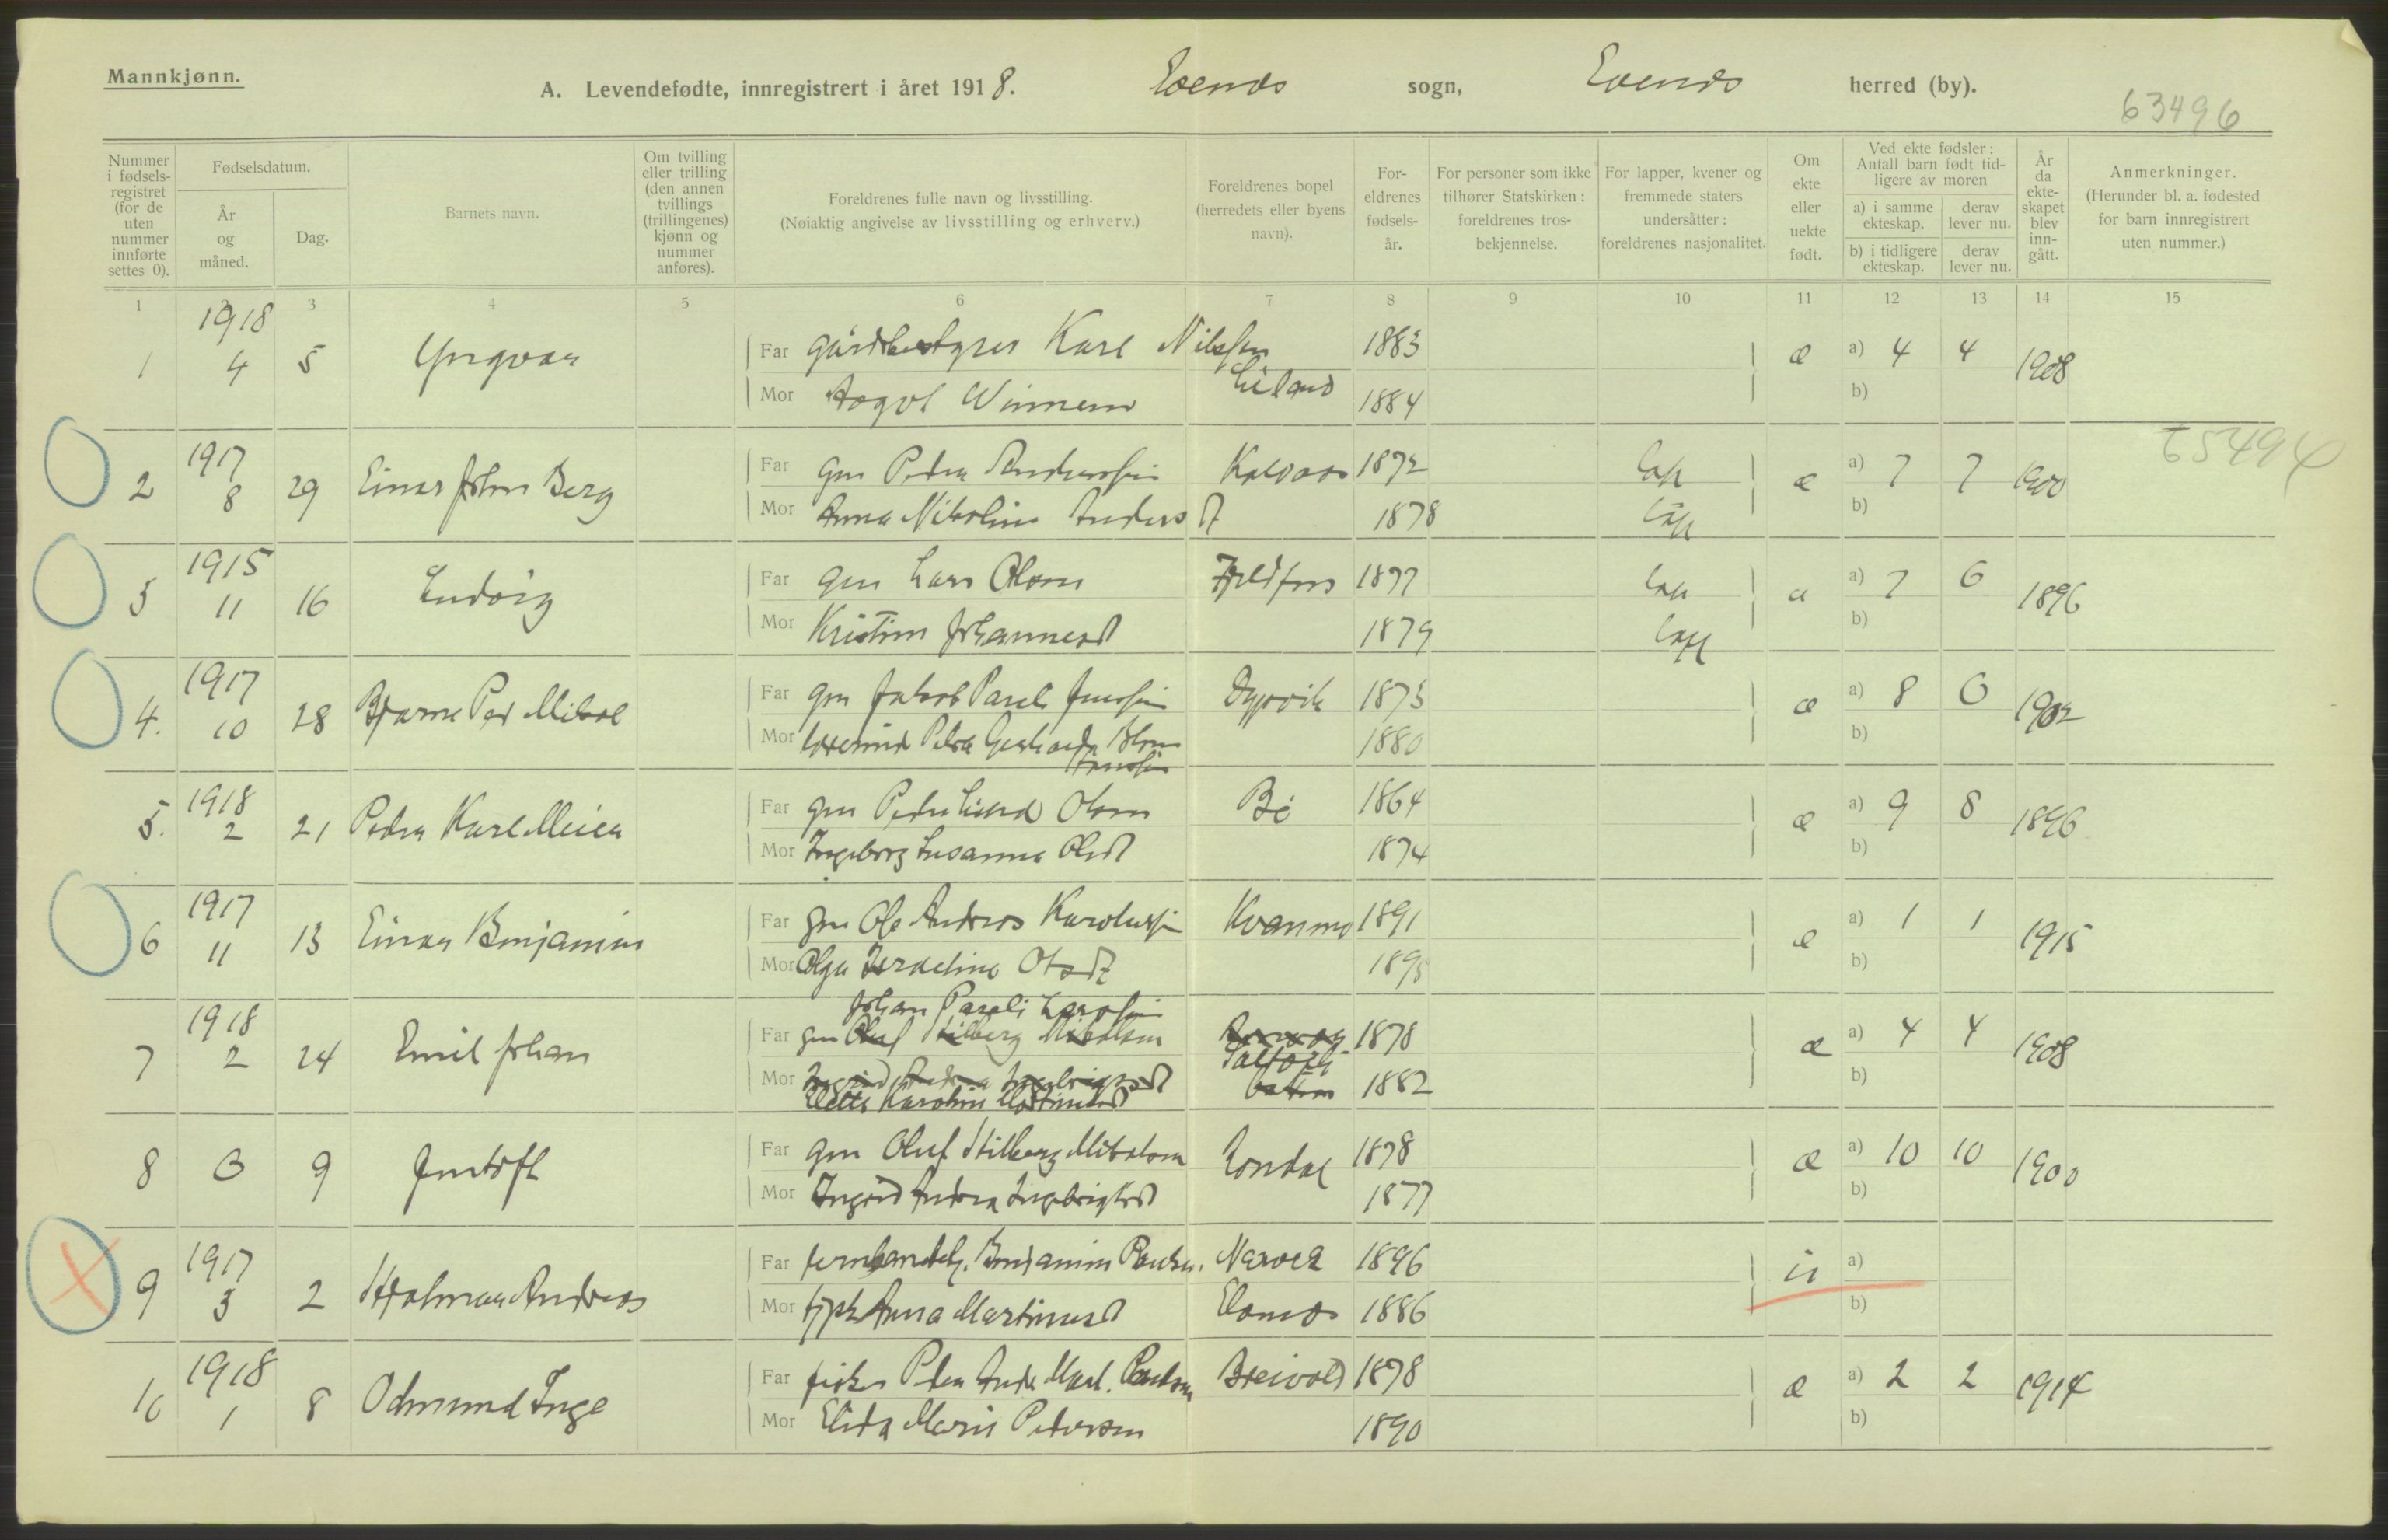 Mannkjønn.
A. Levendefødte, innregistrert i året 1918. Evenes sogn, Evenes herred (by).
63496
Nummer i fødsels-registret (for de uten nummer innførte settes 0).
Fødselsdatum.
År og måned.
Dag.
Barnets navn.
Om tvilling eller trilling (den annen tvillings (trillingenes) kjønn og nummer anføres).
Foreldrenes fulle navn og livsstilling.
(Nøiaktig angivelse av livsstilling og erhverv.)
Foreldrenes bopel (herredets eller byens navn).
For-eldrenes fødsels-år.
For personer som ikke tilhører Statskirken: foreldrenes tros-bekjennelse.
For lapper, kvener og fremmede staters undersåtter: foreldrenes nasjonalitet.
Om ekte eller uekte født.
Ved ekte fødsler: Antall barn født tid-ligere av moren
a) i samme ekteskap. derav lever nu.
b) i tidligere ekteskap. derav lever nu.
År da ekte-skapet blev inn-gått.
Anmerkninger.
(Herunder bl. a. fødested for barn innregistrert uten nummer.)
1 2 3 4 5 6 7 8 9 10 11 12 13 14 15
1 1918 4 5 Yngvar
Far gårdbestyrer Karl Nilssen 1883 æ a) 4 4 1908
Mor Aagot Liland 1884 b)
2 1917 8 29 Einar Johan Berg
Far gm Peder Anderssen 1872 lap æ a) 7 7 1900
Mor Anna Nikoline Andersd 1878 lap b)
65494
3 1915 11 16 Ludvig
Far gm Lars Olsen 1877 lap æ a) 7 6 1896
Mor Kristine Johannesd 1879 lap b)
4. 1917 10 28 Bjarne Per Mikal
Far gm Jakob Pareli Jenssen Dyrvik 1873 æ a) 8 6 1902
Mor Petra Gerharda Jenssen 1880 b)
5. 1918 2 21 Peder Karl Meier
Far gm Peder Olsen Bø 1864 æ a) 9 8 1896
Mor Ingeborg Susanna Olsd 1874 b)
6 1917 11 13 Einar Benjamin
Far gm Ole Andreas Karolussen Kvanmo 1891 æ a) 1 1 1915
Mor Olga Israeline Olsd 1895 b)
7 1918 2 24 Emil Johan
Johan Pareli Larssen
Far gm Oluf Stilberg Mikalsen 1878 æ a) 4 4 1908
Mor Ingrid Andrea Ingebrigtsd 1882 b)
Karoline Martinusd
8 0 9
Far gm Oluf Stilberg Mikalsen 1878 æ a) 10 10 1900
Mor Ingrid Andrea Ingebrigtsd 1877 b)
9 1917 3 2 Hjalmar Andreas
Far Benjamin Paulsen. Narvik 1896 u a)
Mor Anna Martinusd Evenes 1886 b)
10 1918 1 8 Odmund Inge
Far fisker Peder Andr. Mart. Paulsen Breivold 1878 æ a) 2 2 1914
Mor Elida Marie Pedersen 1890 b)